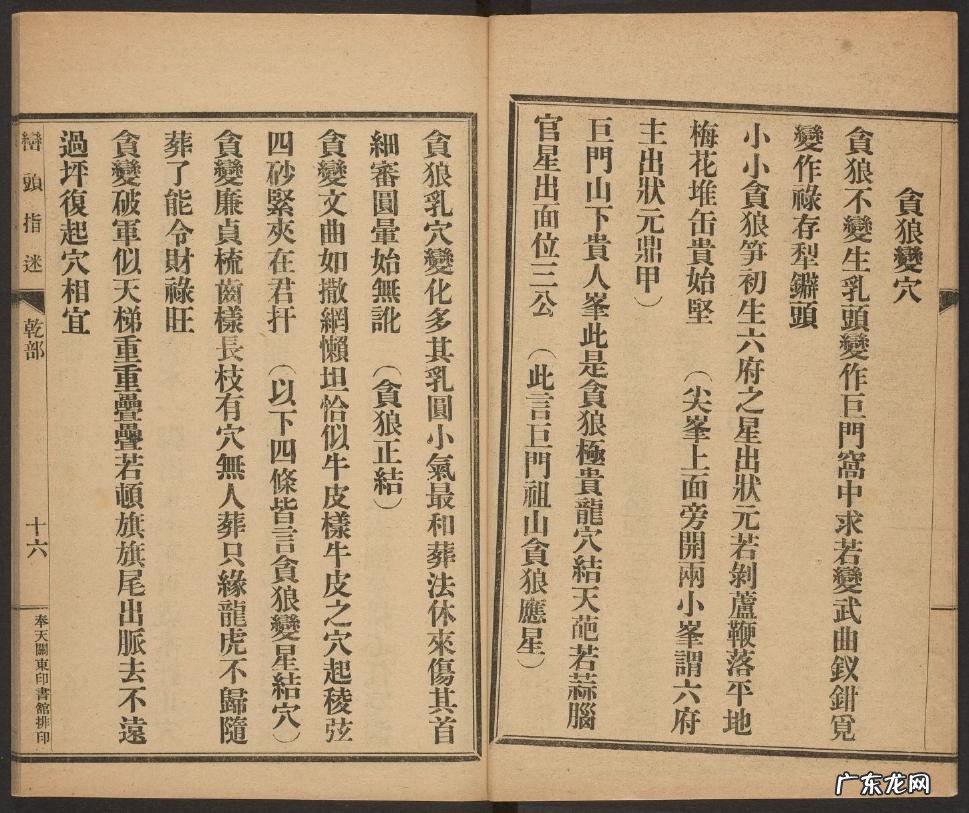 貪狼變穴
貪狼不變生乳頭變作巨門窩中求若變武曲釵鉗覓
變作祿存犁鐴頭
小小貪狼笋初生六府之星出狀元若剝蘆鞭落平地
梅花堆缶貴始堅　（尖峯上面旁開兩小峯謂六府
主出狀元鼎甲）
巨門山下貴人峯此是貪狼極貴龍穴結天葩若蒜腦
官星出面位三公　（此言巨門祖山貪狼應星）
貪狼乳穴變化多其乳圓小氣最和葬法休來傷其首
細審圓暈始無訛　（貪狼正結）
貪變文曲如撒網懶坦恰似牛皮樣牛皮之穴起稜弦
四砂緊夾在君扦　（以下四條皆言貪狼變星結穴）
貪變廉貞梳齒樣長枝有穴無人葬只緣龍虎不歸隨
葬了能令財祿旺
貪變破軍似天梯重重疊疊若頓旗旗尾出脈去不遠
過坪復起穴相宜
巒頭指迷
乾部
十六
奉天關東印書館排印
广东龙网